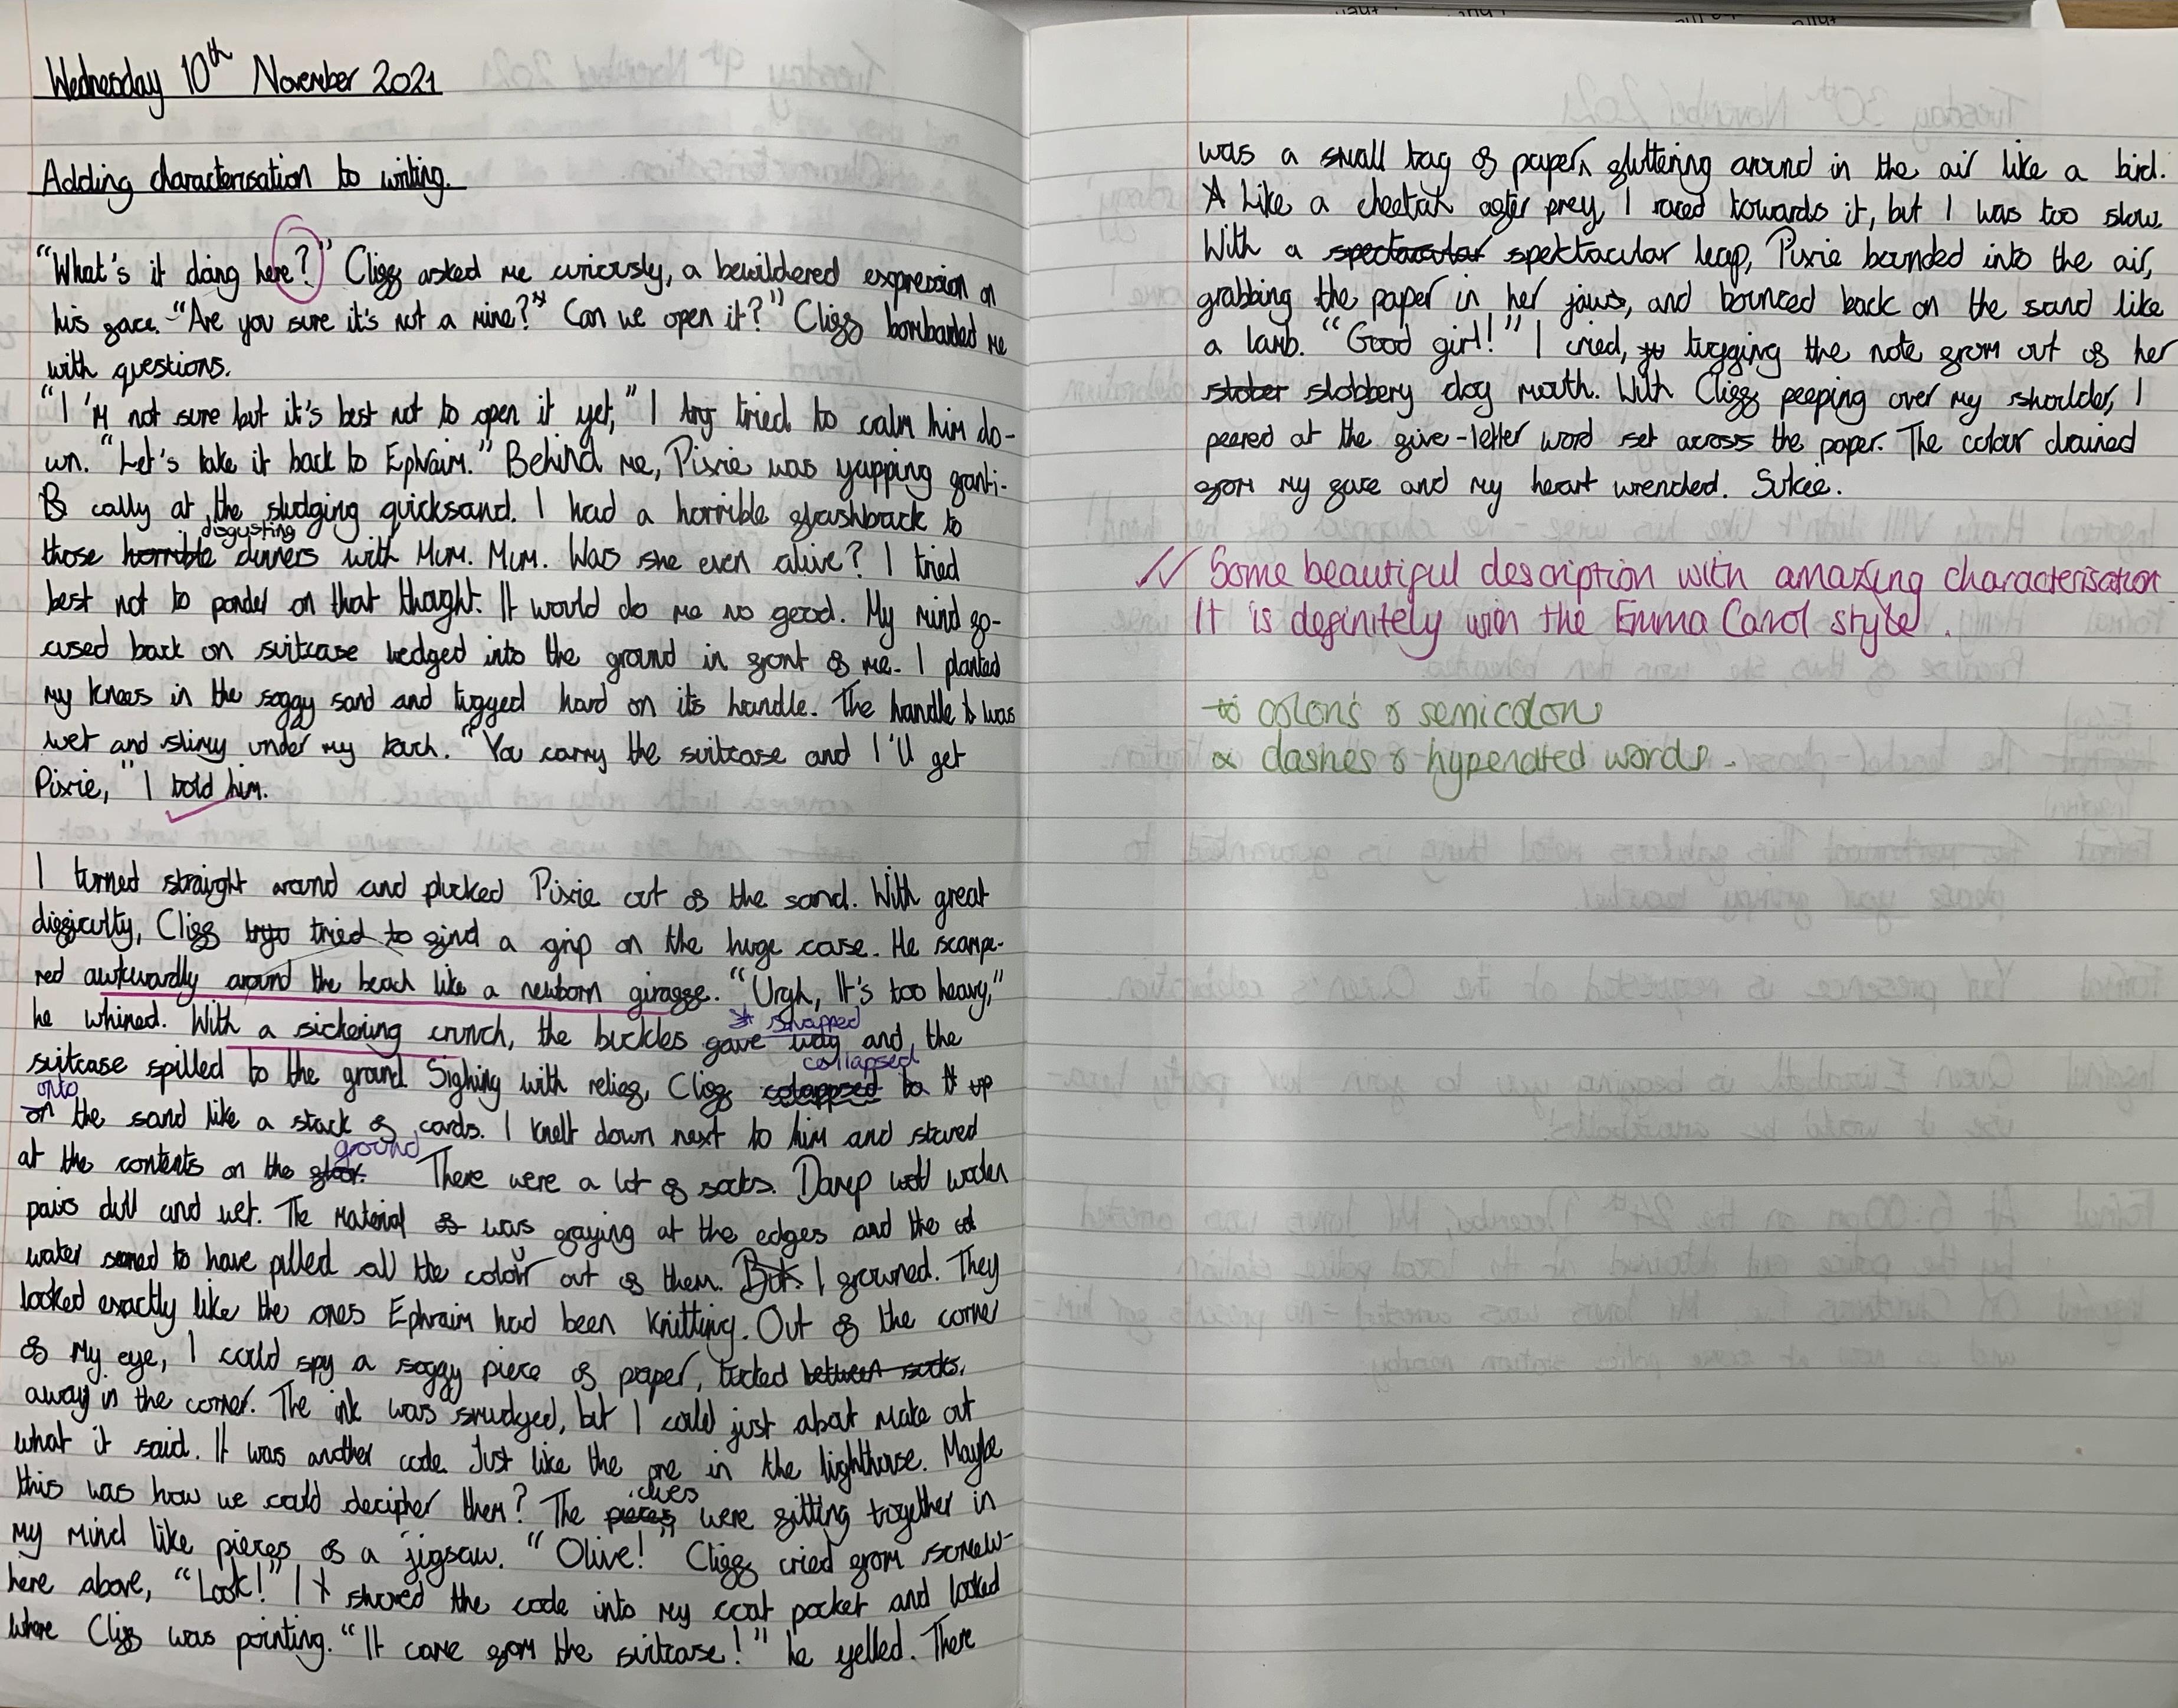 Wednesday 10th November 2021
Adding characterisation to writing.
"What's it doing here?" Cliff asked me curiously, a bewildered expression on
his face. "Are you sure it's not a mine?" Can we open it?" Cliff bombarded me
with questions.
"I'm not sure but it's best not to open it yet," I try tried to calm him do-
wn. "Let's take it back to Ephraim." Behind me, Pixie was yapping franti-
B cally at the sludging quicksand. I had a horrible flashback to
disgusting
those horrible dinners with Mum. Mum. Was she even alive? I tried
best not to ponder on that thought. It would do me no good. My mind fo-
cused back on suitcase wedged into the ground in front of me. I planted
my knees in the soggy sand and tugged hard on its handle. The handle was
wet and slimy under my touch. "You carry the suitcase and I'll get
Pixie," I told him.
I turned straight around and plucked Pixie out of the sand. With great
difficulty, Cliff tried to find a grip on the huge case. He scampe-
red awkwardly around the beach like a newborn giraffe. "Urgh, It's too heavy,"
he whined. With a sickening crunch, the buckles gave way and the
snapped
suitcase spilled to the ground Sighing with relief, Cliff colappsed to up
collapsed
onto
on the sand like a stack of cards. I knelt down next to him and stared
at the contents on the floor. There were a lot of socks. Damp woolen
ground
pairs dull and wet. The material of was graying at the edges and the
water seemed to have pulled all the colour out of them. But I frowned. They
looked exactly like the ones Ephraim had been knitting. Out of the corner
of my eye, I could spy a soggy piece of paper, tucked between socks.
away in the corner. The ink was smudged, but I could just about make out
what it said. It was another code. Just like the one in the lighthouse. Maybe
this was how we could decipher them? The pieces were fitting together in
clues
my mind like pieces of a jigsaw. "Olive!" Cliff cried from somew-
here above, "Look!" I shoved the code into my coat pocket and looked
where Cliff was pointing. "It came from the suitcase!" he yelled. There
was a small bag of paper, fluttering around in the air like a bird.
A Like a cheetah after prey, I raced towards it, but I was too slow.
With a spectacular spektacular leap, Pixie bounded into the air,
grabbing the paper in her jaws, and bounced back on the sand like
a lamb. "Good girl!" I cried, tugging the note from out of her
slober slobbery dog mouth. With Cliff peeping over my shoulder, I
peered at the five-letter word set across the paper. The colour drained
from my face and my heart wrenched. Sukie.
Some beautiful description with amazing characterisation
It is definitely win the Emma Carol style.
colon's & semicolons
dashes & hypenated words.